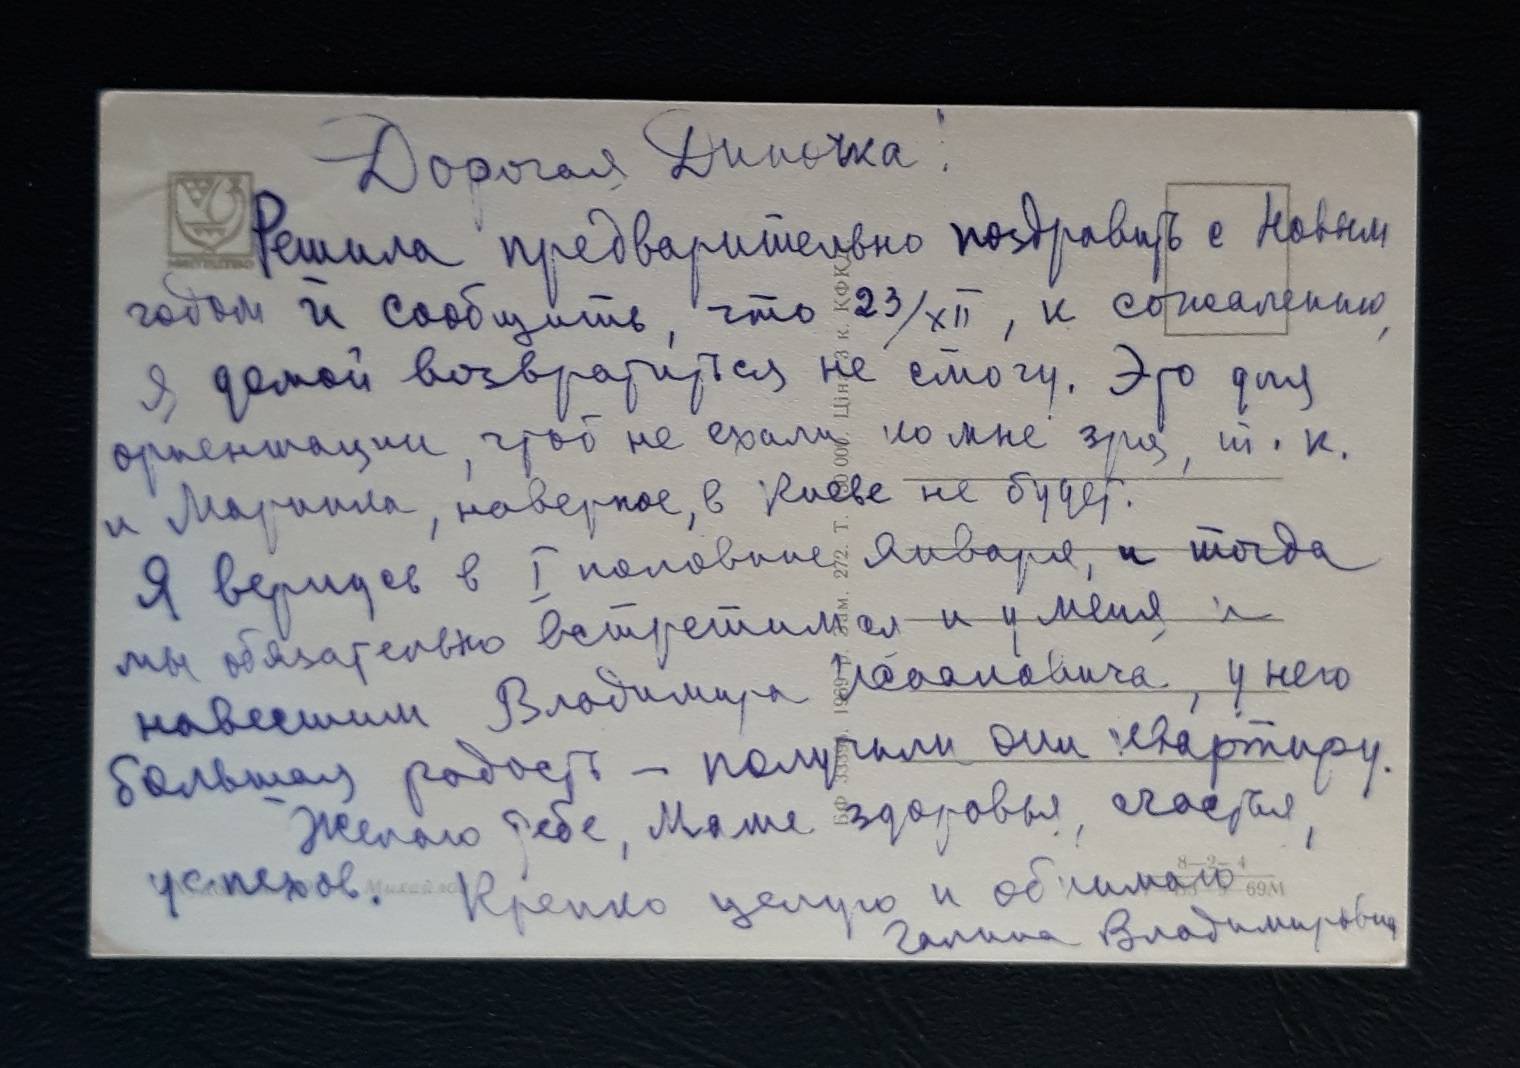 Дорогая Диночка!
Решила предварительно поздравить с Новым
годом и сообщить, что 23/XII, к сожалению,
я домой возвратиться не смогу. Это для
ориентации, чтоб не ехали ко мне зря, т. к.
и Марина, наверное, в Киеве не будет.
Я вернусь в I половине января, и тогда
мы обязательно встретимся и у меня и
навестим Владимира, у него
большая радость – получили они квартиру.
Желаю тебе, Маме здоровья, счастья,
успехов. Крепко целую и обнимаю
Галина Владимировна
БФ 1969 р. Зам. 272. Т. Ціна 3 к. КФКД
8–2–4
69М